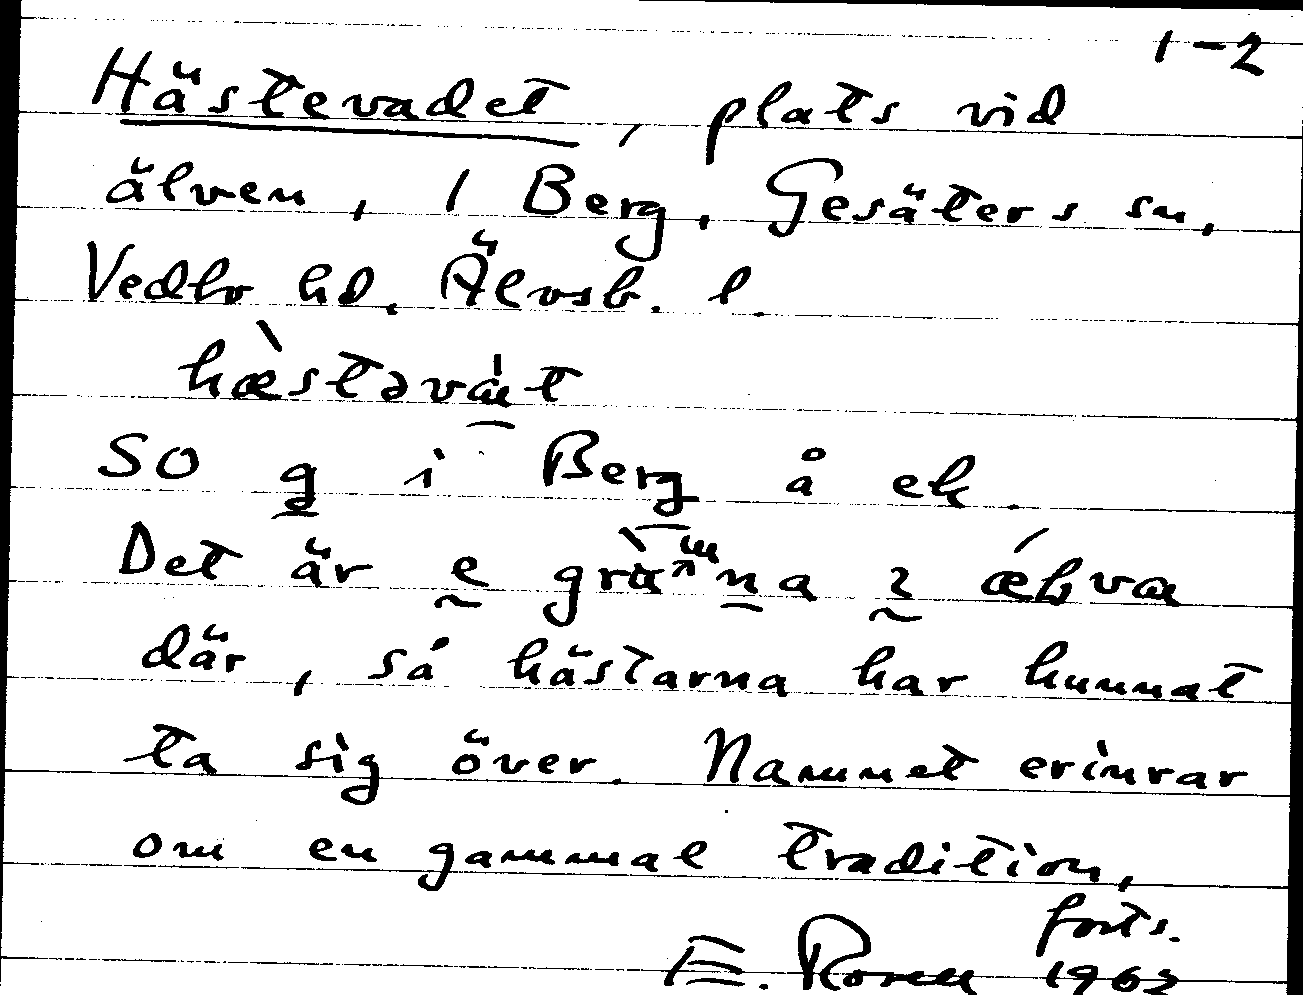 1-2
Hästevadet, plats vid
älven, 1 Berg, Gesäters sn,
Vedbo hd. Älvsb. l.
hæ̀stəvat
SO g i Berg å ek.
Det är e na
där, så hästarna har kunnat
ta sig över. Namnet erinrar
om en gammal tradition,
forts.
E. Rosell 1963